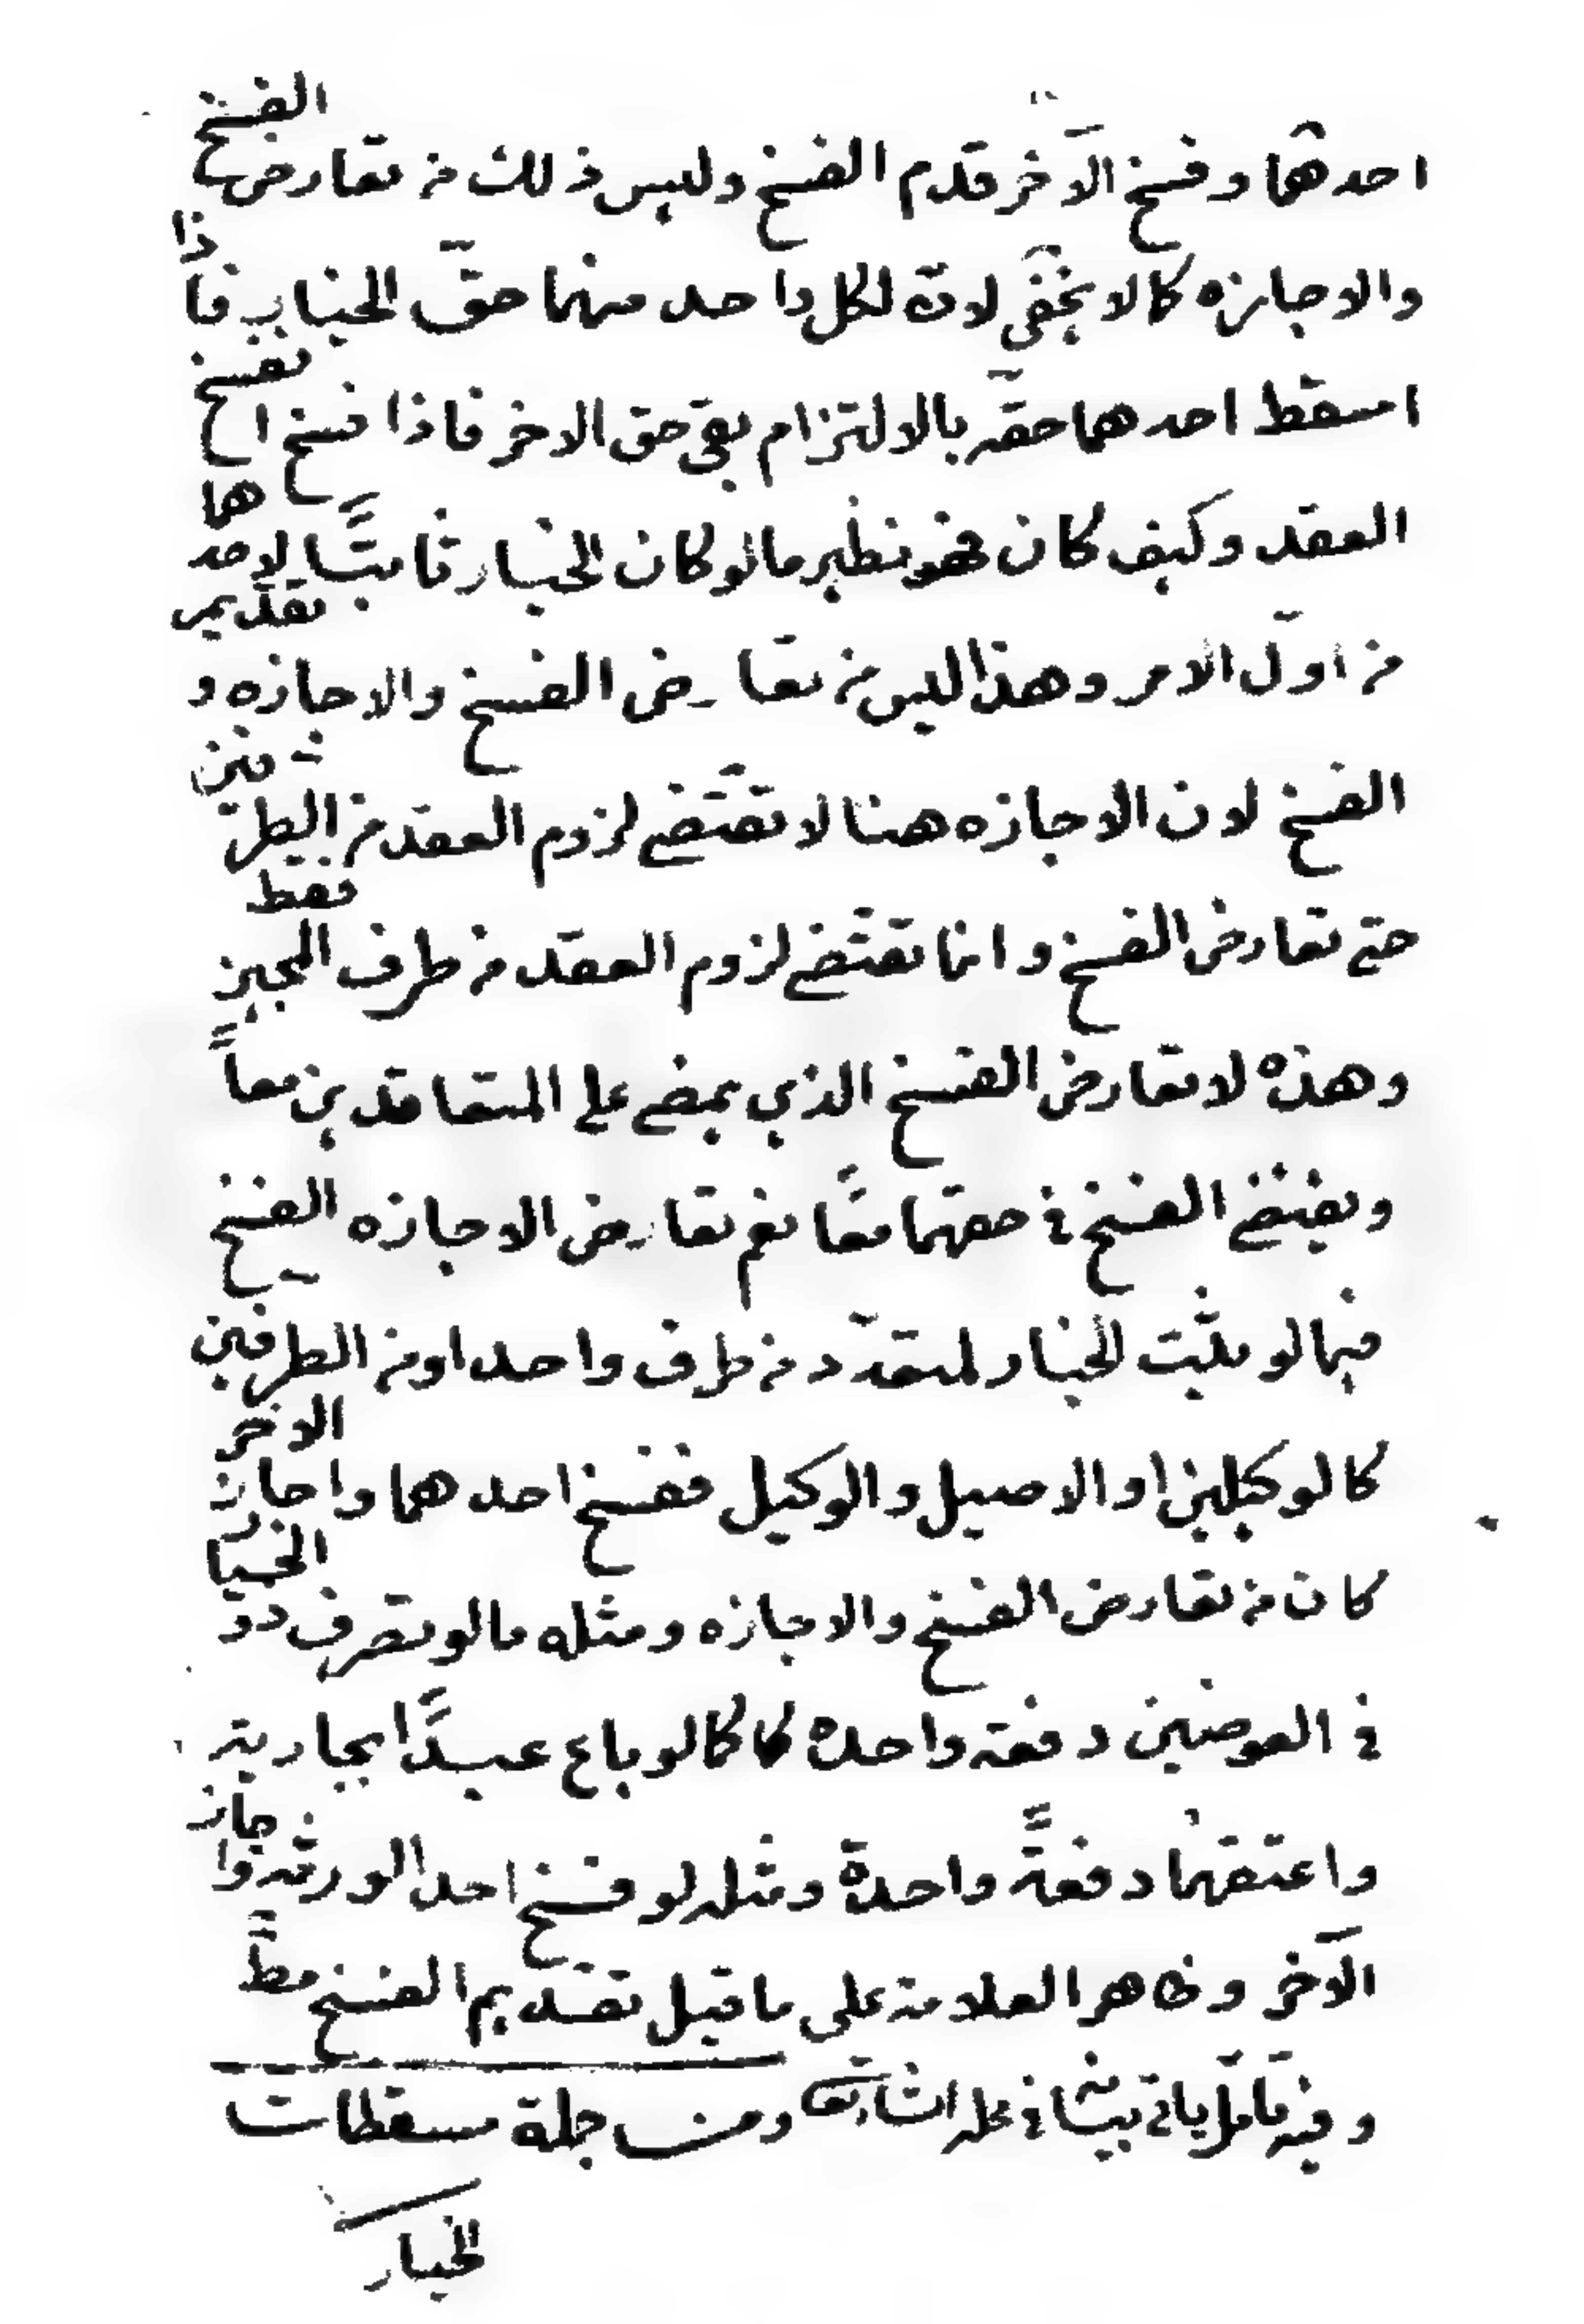 احدهما وفسخ الآخر قدم الفسخ وليس ذلك من تعارض الفسخ
والاجازه كما لا يخفى لانه لكل واحد منهما حقّ الخيار فاذا
اسقط احدهما حقّه بالالتزام بقي حق الاخر فاذا فسخ انفسخ
العقد وكيف كان فهو نظير ما لو كان الخيار ثابتًا لاحدهما
من اوّل الامر وهذا ليس من تعارض الفسخ والاجازه وتقديم
الفسخ لان الاجازه هنا لا تقتضي لزوم العقد من الطرفين
حتى تعارض الفسخ وانما تقتضي لزوم العقد من طرف المجيز فقط
وهذه لا تعارض الفسخ الذي يمضي على المتعاقدين معاً
ويقتضي الفسخ في حقهما معًا نعم تعارض الاجازه الفسخ
فيما لو يثبت الخيار لمتعدّد من طرف واحد او من الطرفين
كالوكيلين او الاصيل والوكيل ففسخ احدهما واجاز الاخر
كان من تعارض الفسخ والاجازه ومثله ما لو تصرف ذو الخيار
في العوضين دفعة واحدة كما كالو باع عبدًا بجارية
واعتقهما دفعةً واحدة ومثله لو فسخ احد الورثة واجاز
الآخر وظاهر العلامة على ما قيل تقديم الفسخ مطّ
وفيه تأمّل يأتي بيانه في محله انشاء الله تعالى ومن جملة مسقطات
الخيار